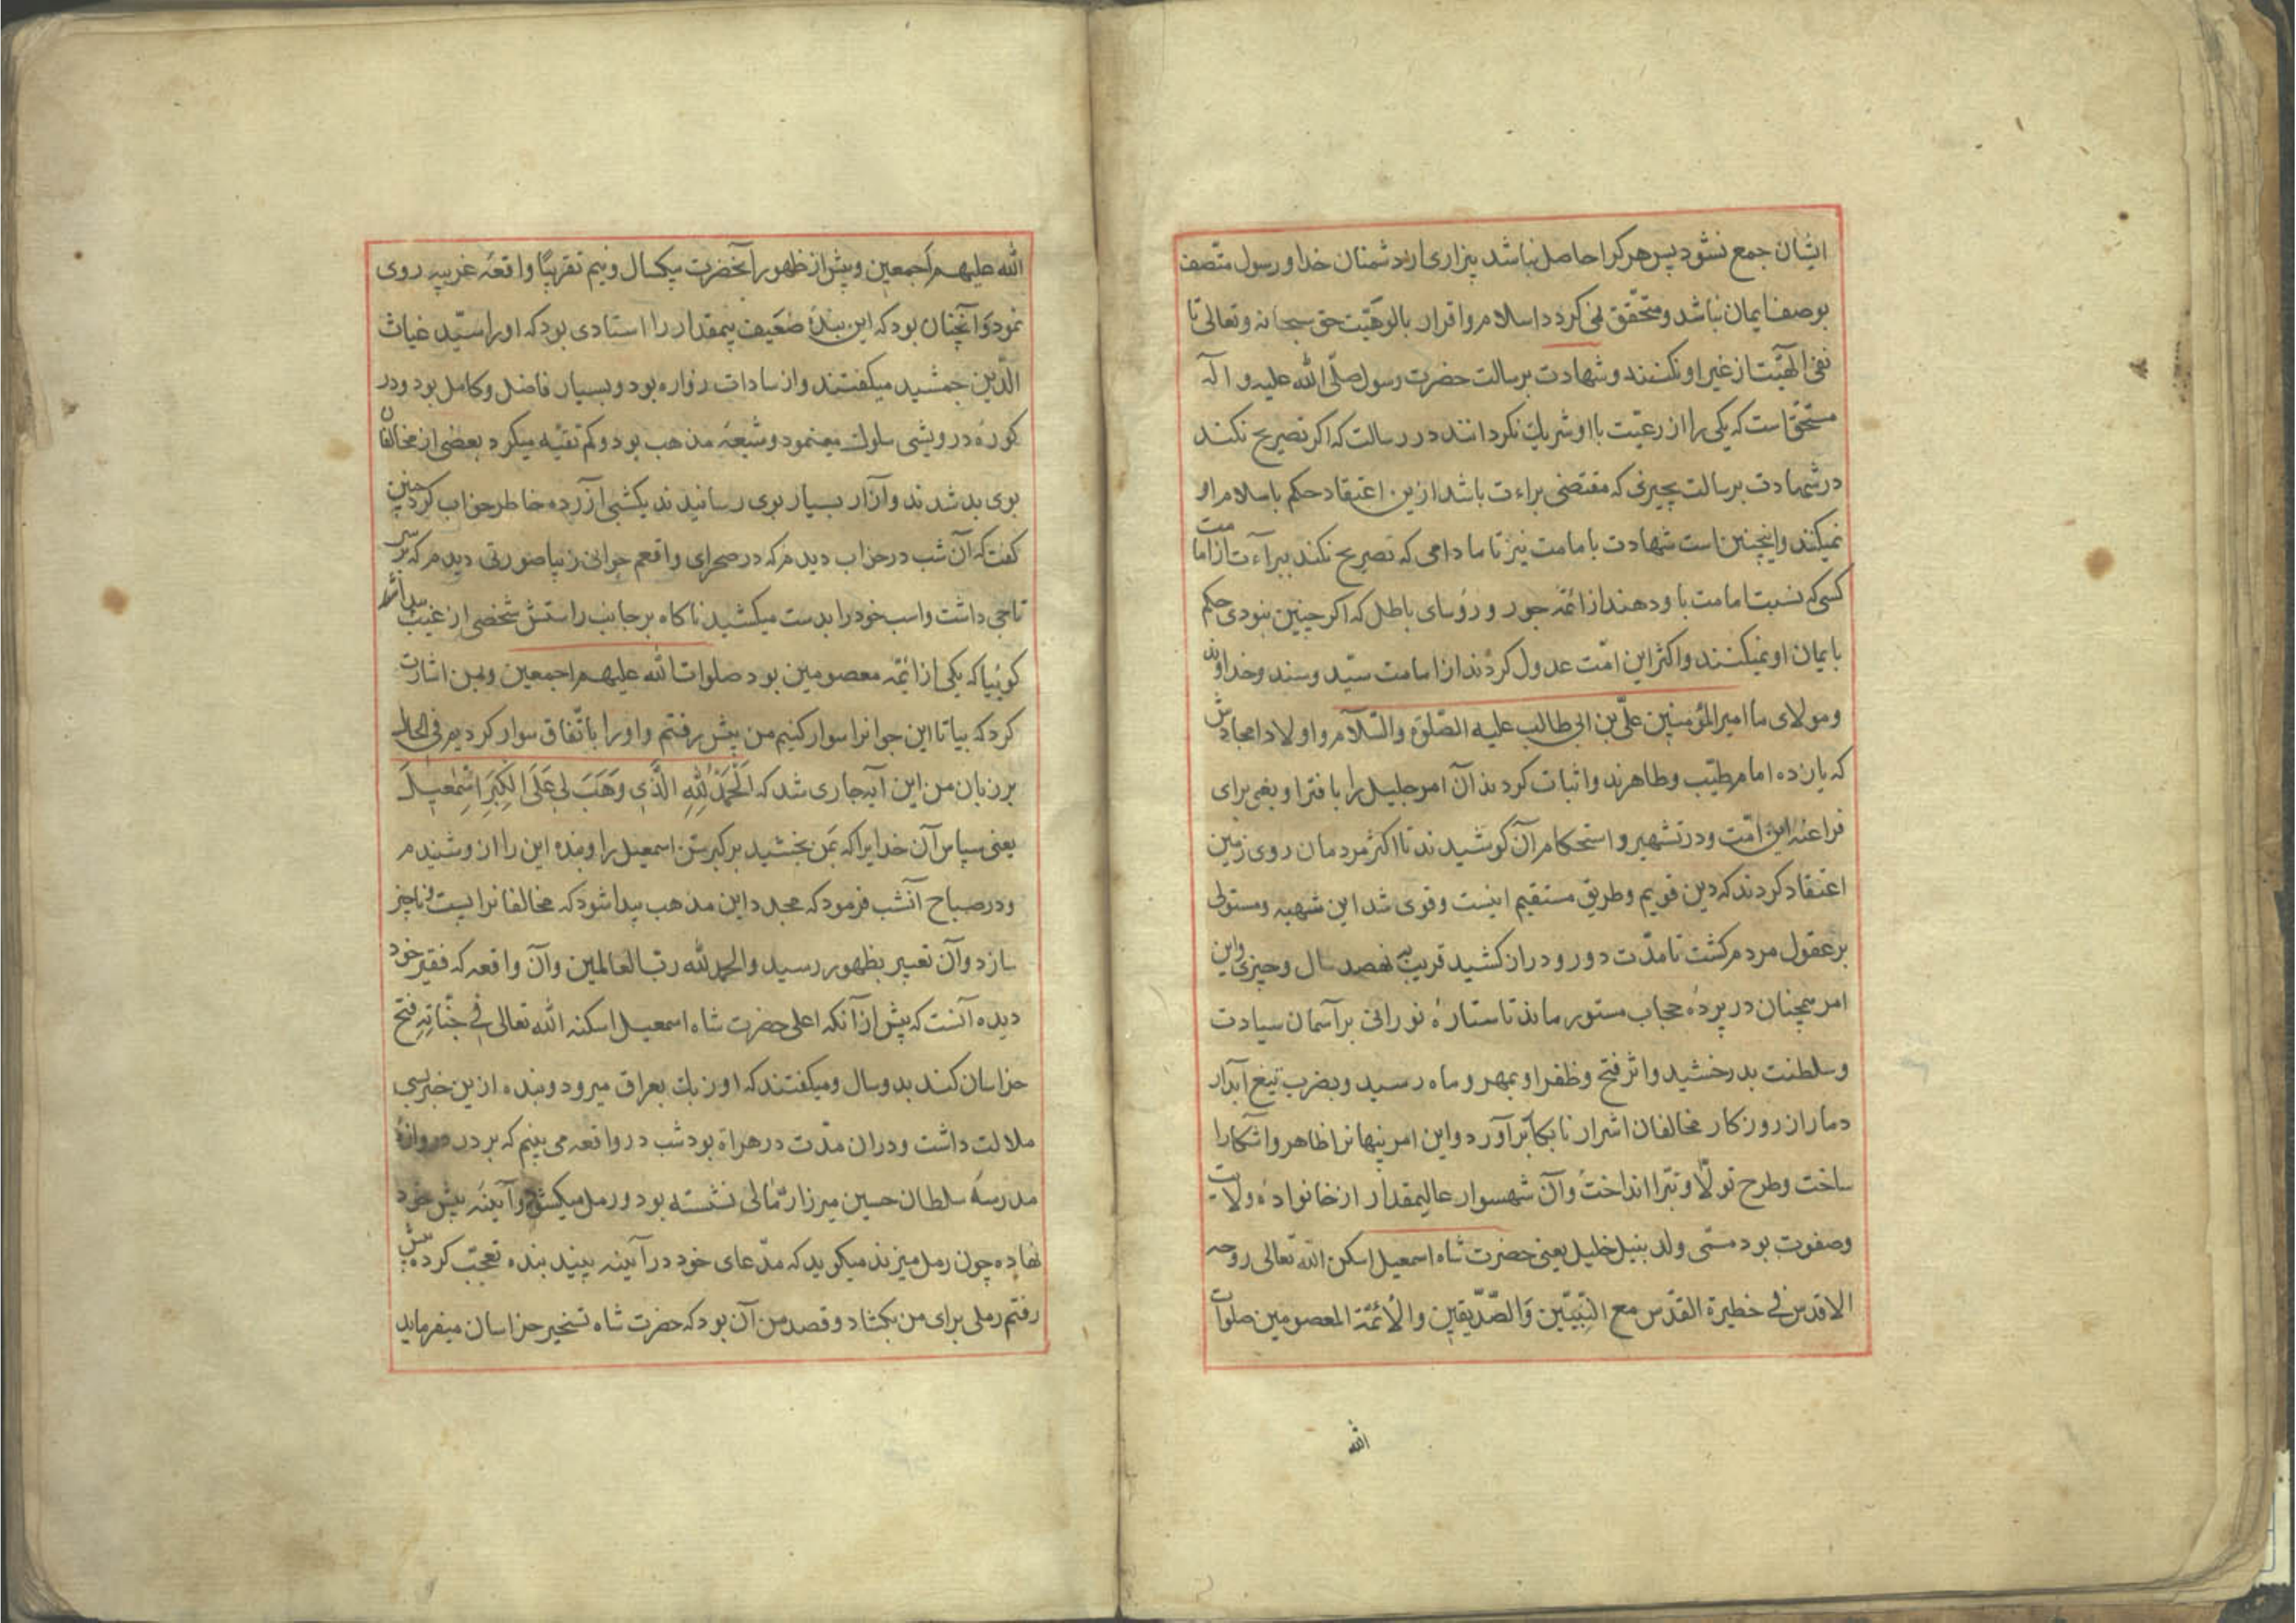 ایشان جمع نشود پس هر کرا حاصل نباشد بیزاری از دشمنان خدا و رسول متّصف
بوصف ایمان نباشد و متحقّق نمی کردد اسلام و اقرار بالوهیّت حق سبحانه و تعالی تا
نفی الهیّت از غیر او نکنند و شهادت برسالت حضرت رسول صلّی الله علیه و اله
مستحق است که یکی را از رعیّت با او شریك نکردانند در رسالت که اکر تصریح نکند
در شهادت برسالت بچیزی که مقتضی براءت باشد ازین اعتقاد حکم باسلام او
نمیکنند و اینچنین است شهادت بامامت نیز تا مادامی که تصریح نکند ببراءت از امامت
کسی که نسبت امامت باو دهند از ائمّه جور و رؤسای باطل که اکر چنین نبودی حکم
بایمان او نمیکنند و اکثر این امّت عدول کردند از امامت سیّد و سند و خداوند
و مولای ما امیر المؤمنین علیّ بن ابی طالب علیه الصّلوة والسّلام و اولاد امجادش
که یازده امام طیّب و طاهرند و اثبات کردند آن امر جلیل را بافترا و بغی برای
فراعنۀ این امّت و در تشهیر و استحکام آن کوشیدند تا اکثر مردمان روی زمین
اعتقاد کردند که دین قویم و طریق مستقیم اینست و قوی شد این شبهه و مستولی
بر عقول مردم کشت تا مدّت دور و دراز کشید قریب به نهصد سال و چیزی و این
امر همچنان در پردۀ حجاب مستور ماند تا ستارۀ نورانی بر آسمان سیادت
و سلطنت بدرخشید و اثر فتح و ظفر او بمهر و ماه رسید و بضرب تیغ ابدار
دمار از روزکار مخالفان اشرار نابکار برآورد و این امر پنهانرا ظاهر و اشکارا
ساخت و طرح تولّا و تبرّا انداخت و آن شهسوار عالیمقدار از خانوادۀ ولایت
و صفوت بود مسمّی ولد بنیل خلیل یعنی حضرت شاه اسمعیل اسکن الله تعالی روحه
الاقدس فی خطیرة القدس مع النّبیّین والصّدّیقین والائمّة المعصومین صلوات
الله
الله علیهم اجمعین و پیش از ظهور آنحضرت بیکسال و نیم تقریبًا واقعۀ غریبه روی
نمود و آنچنان بود که این بندۀ ضعیف بیمقدار را استادی بود که او را سیّد غیاث
الدّین جمشید میکفتند و از سادات زواره بود و بسیار فاضل و کامل بود و در
کورۀ درویشی سلوك مینمود و شیعه مذهب بود و کم تقیّه میکرد بعضی از مخالفان
بوی بد شدند و آزار بسیار بوی رسانیدند یکشبی آزرده خاطر خواب کرد چنین
کفت که آن شب در خواب دیدم که در صحرای واقعم جوانی زیبا صورتی دیدم که بر سر
تاجی داشت و اسب خود را بدست میکشید ناکاه بر جانب راستش شخصی از غیب پیدا شد
کوئیا که یکی از ائمّه معصومین بود صلوات الله علیهم اجمعین و بمن اشارت
کرد که بیا تا این جوانرا سوار کنیم من پیش رفتم و او را باتّفاق سوار کردیم فی الحال
بر زبان من این آیه جاری شد که اَلْحَمْدُ لِلّٰهِ الَّذِی وَهَبَ لِی عَلَی الْکِبَرِ اِسْمٰعِیلَ
یعنی سپاس آن خدایرا که بمن بخشید بر کبر سن اسمعیل را و بنده این را از و شنیدم
و در صباح آنشب فرمود که مجدد این مذهب پیدا شود که مخالفانرا نیست و ناچیز
سازد و آن تعبیر بظهور رسید والحمد لله ربّ العالمین و آن واقعه که فقیر خود
دیده آنست که پیش از آنکه اعلی حضرت شاه اسمعیل اسکنه الله تعالی فی جنّاته فتح
خراسان کند بدو سال و میکفتند که اوزبك بعراق میرود و بنده ازین خبر بسی
ملالت داشت و دران مدّت در هراة بود شب در واقعه می بینم که بر در دروازۀ
مدرسۀ سلطان حسین میرزا رمّالی نشسته بود و رمل میکشد و آینه پیش خود
نهاده چون رمل میزند میکوید که مدّعای خود در آینه ببیند بنده تعجّب کرده پیش
رفتم رملی برای من بکشاد و قصد من آن بود که حضرت شاه تسخیر خراسان میفرماید